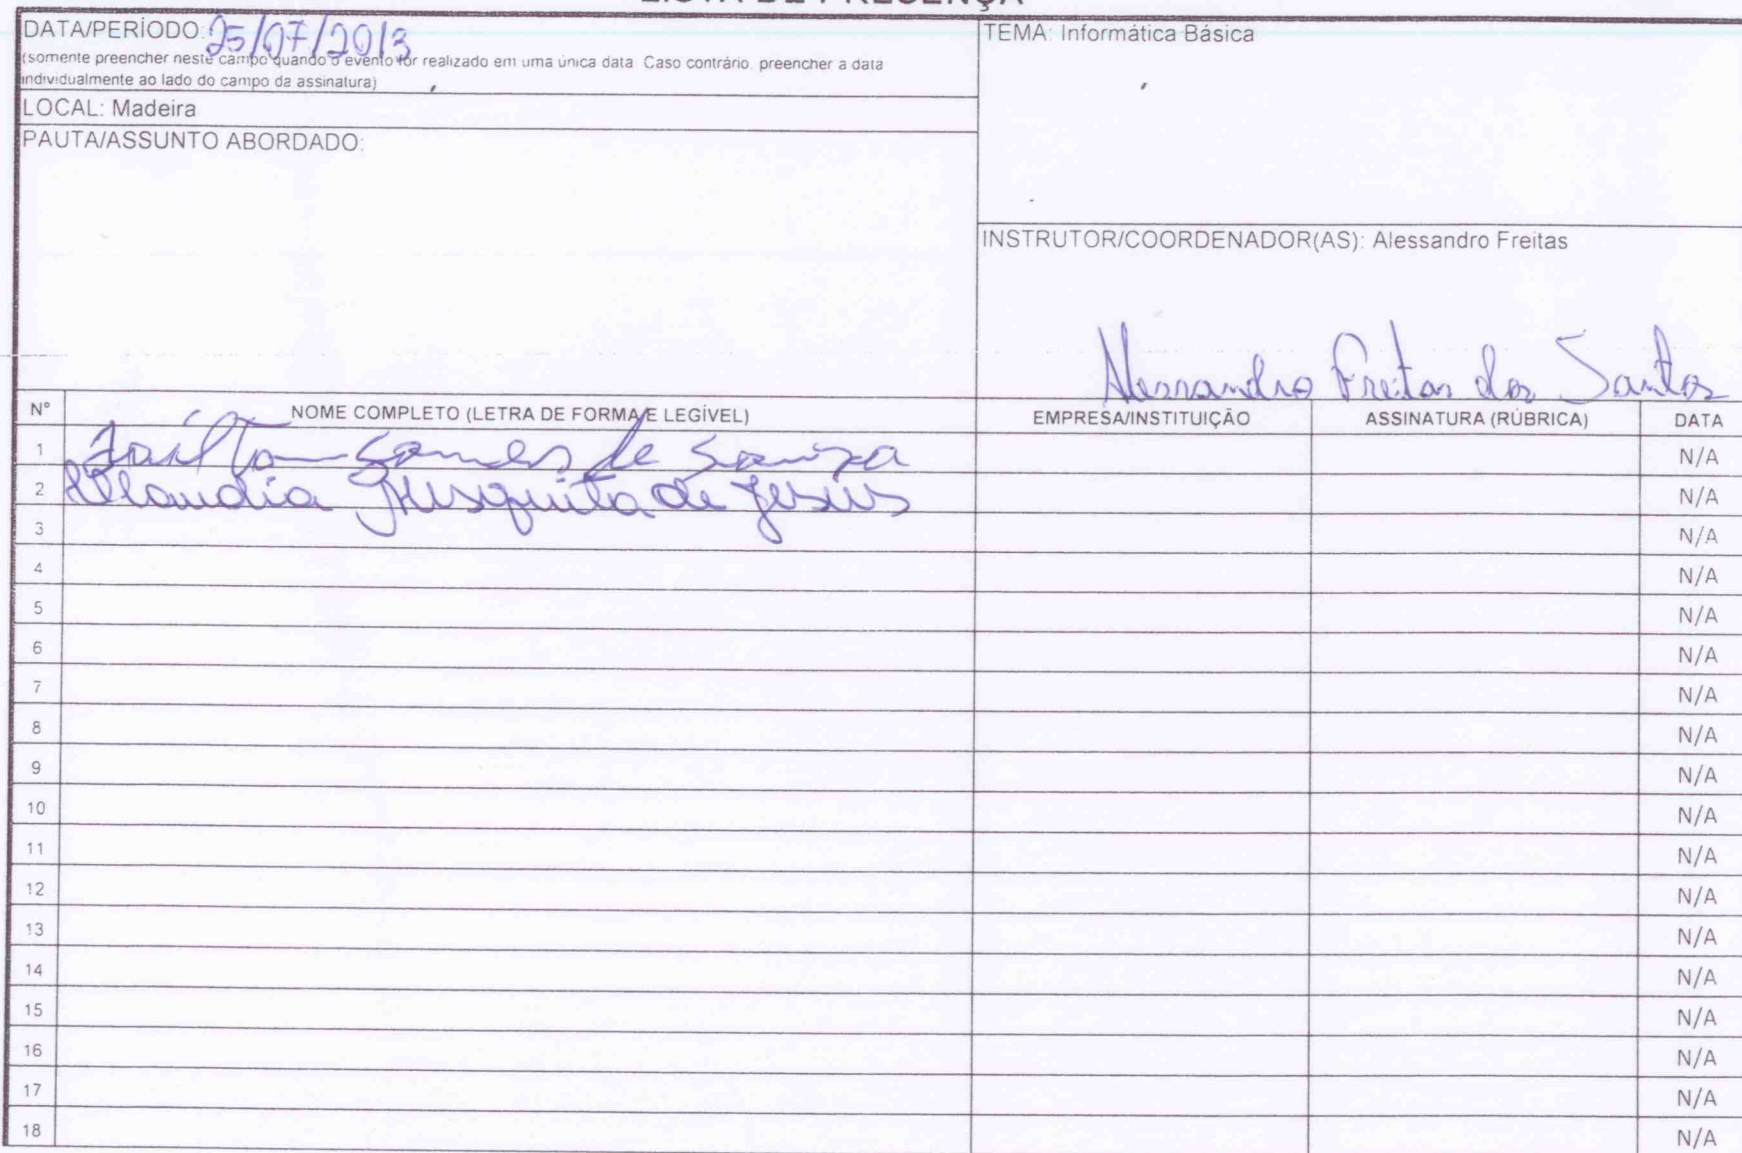 LISTA DE PRESENÇA
DATA/PERÍODO: 25/07/2013
(somente preencher neste campo quando o evento for realizado em uma única data. Caso contrário, preencher a data
individualmente ao lado do campo da assinatura)
LOCAL: Madeira
PAUTA/ASSUNTO ABORDADO:
TEMA: Informática Básica
INSTRUTOR/COORDENADOR(AS): Alessandro Freitas
Alessandro Freitas dos Santos
Nº NOME COMPLETO (LETRA DE FORMA E LEGÍVEL) EMPRESA/INSTITUIÇÃO ASSINATURA (RÚBRICA) DATA
1 Gomes de Souza N/A
2 Claudia Musquita de Jesus N/A
3 N/A
4 N/A
5 N/A
6 N/A
7 N/A
8 N/A
9 N/A
10 N/A
11 N/A
12 N/A
13 N/A
14 N/A
15 N/A
16 N/A
17 N/A
18 N/A